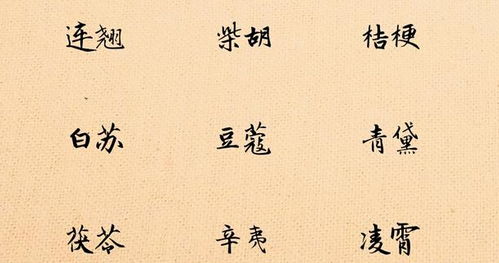 连翘 柴胡 桔梗
白苏 豆蔻 青黛
茯苓 辛夷 凌霄